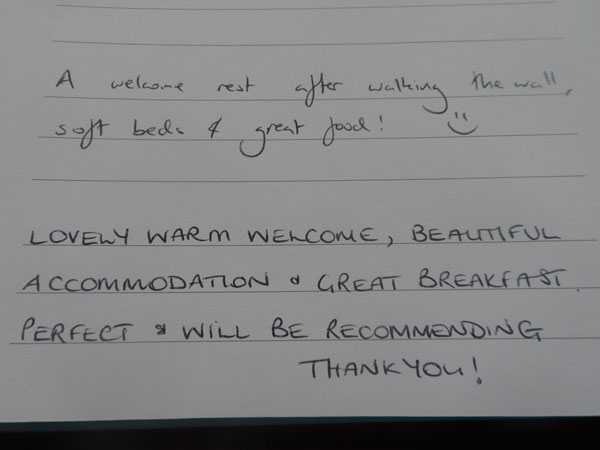 A welcome rest after walking the wall,
soft beds & great food! :)
LOVELY WARM WELCOME, BEAUTIFUL
ACCOMMODATION & GREAT BREAKFAST.
PERFECT & WILL BE RECOMMENDING
THANKYOU!